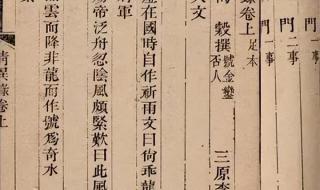 門 二事
門 一事
錄卷上 足本
穀撰 號金鑾否人 三原李
天文
虛在國時自作祈雨文曰尚乖龍
將軍
煬帝泛舟忽陰風頗緊歎曰此風
雲而降非龍而作號爲奇水
清異錄卷上